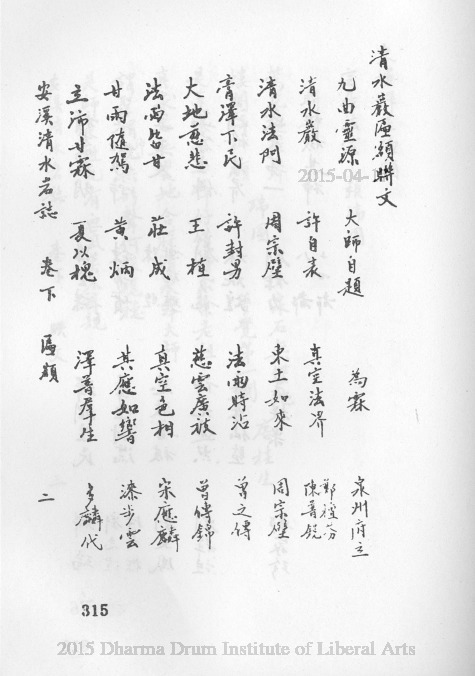 清水巖匾額聯文
九曲靈源 大師自題 為霖 泉州府立
清水巖 許自表 真空法界 鄭禮芬 陳普銳
清水法門 周宗璧 東土如來 周宗璧
膏澤下民 許封男 法雨時沾 曾之傳
大地慈悲 王植 慈雲廣被 曾傳錦
法雨皆甘 莊成 真空色相 宋應麟
甘雨隨駕 黃炳 其應如響 步雲
立沛甘霖 夏以槐 澤普群生 麟代
安溪清水岩誌 卷下 匾額 二
315
2015-04-1
2015 Dharma Drum Institute of Liberal Arts